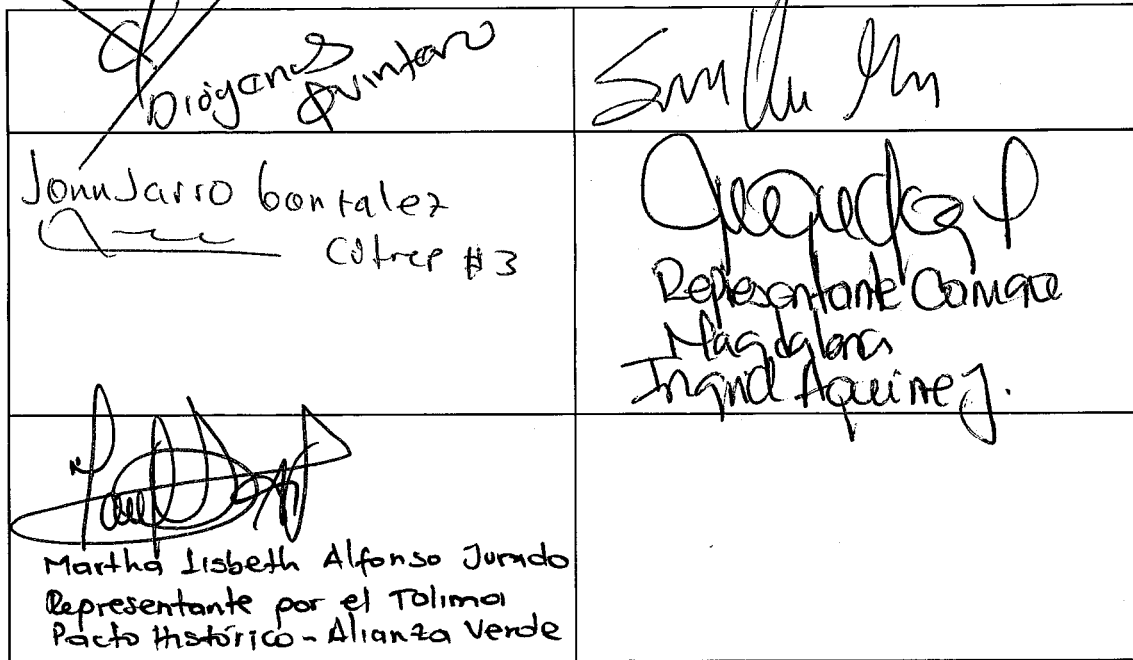 Diógenes
Quintero
Jonn Jairo Gonzalez
Citrep #3
Representante Camara
Magdalena
Ingrid Aguirre J.
Martha Lisbeth Alfonso Jurado
Representante por el Tolima
Pacto Histórico - Alianza Verde